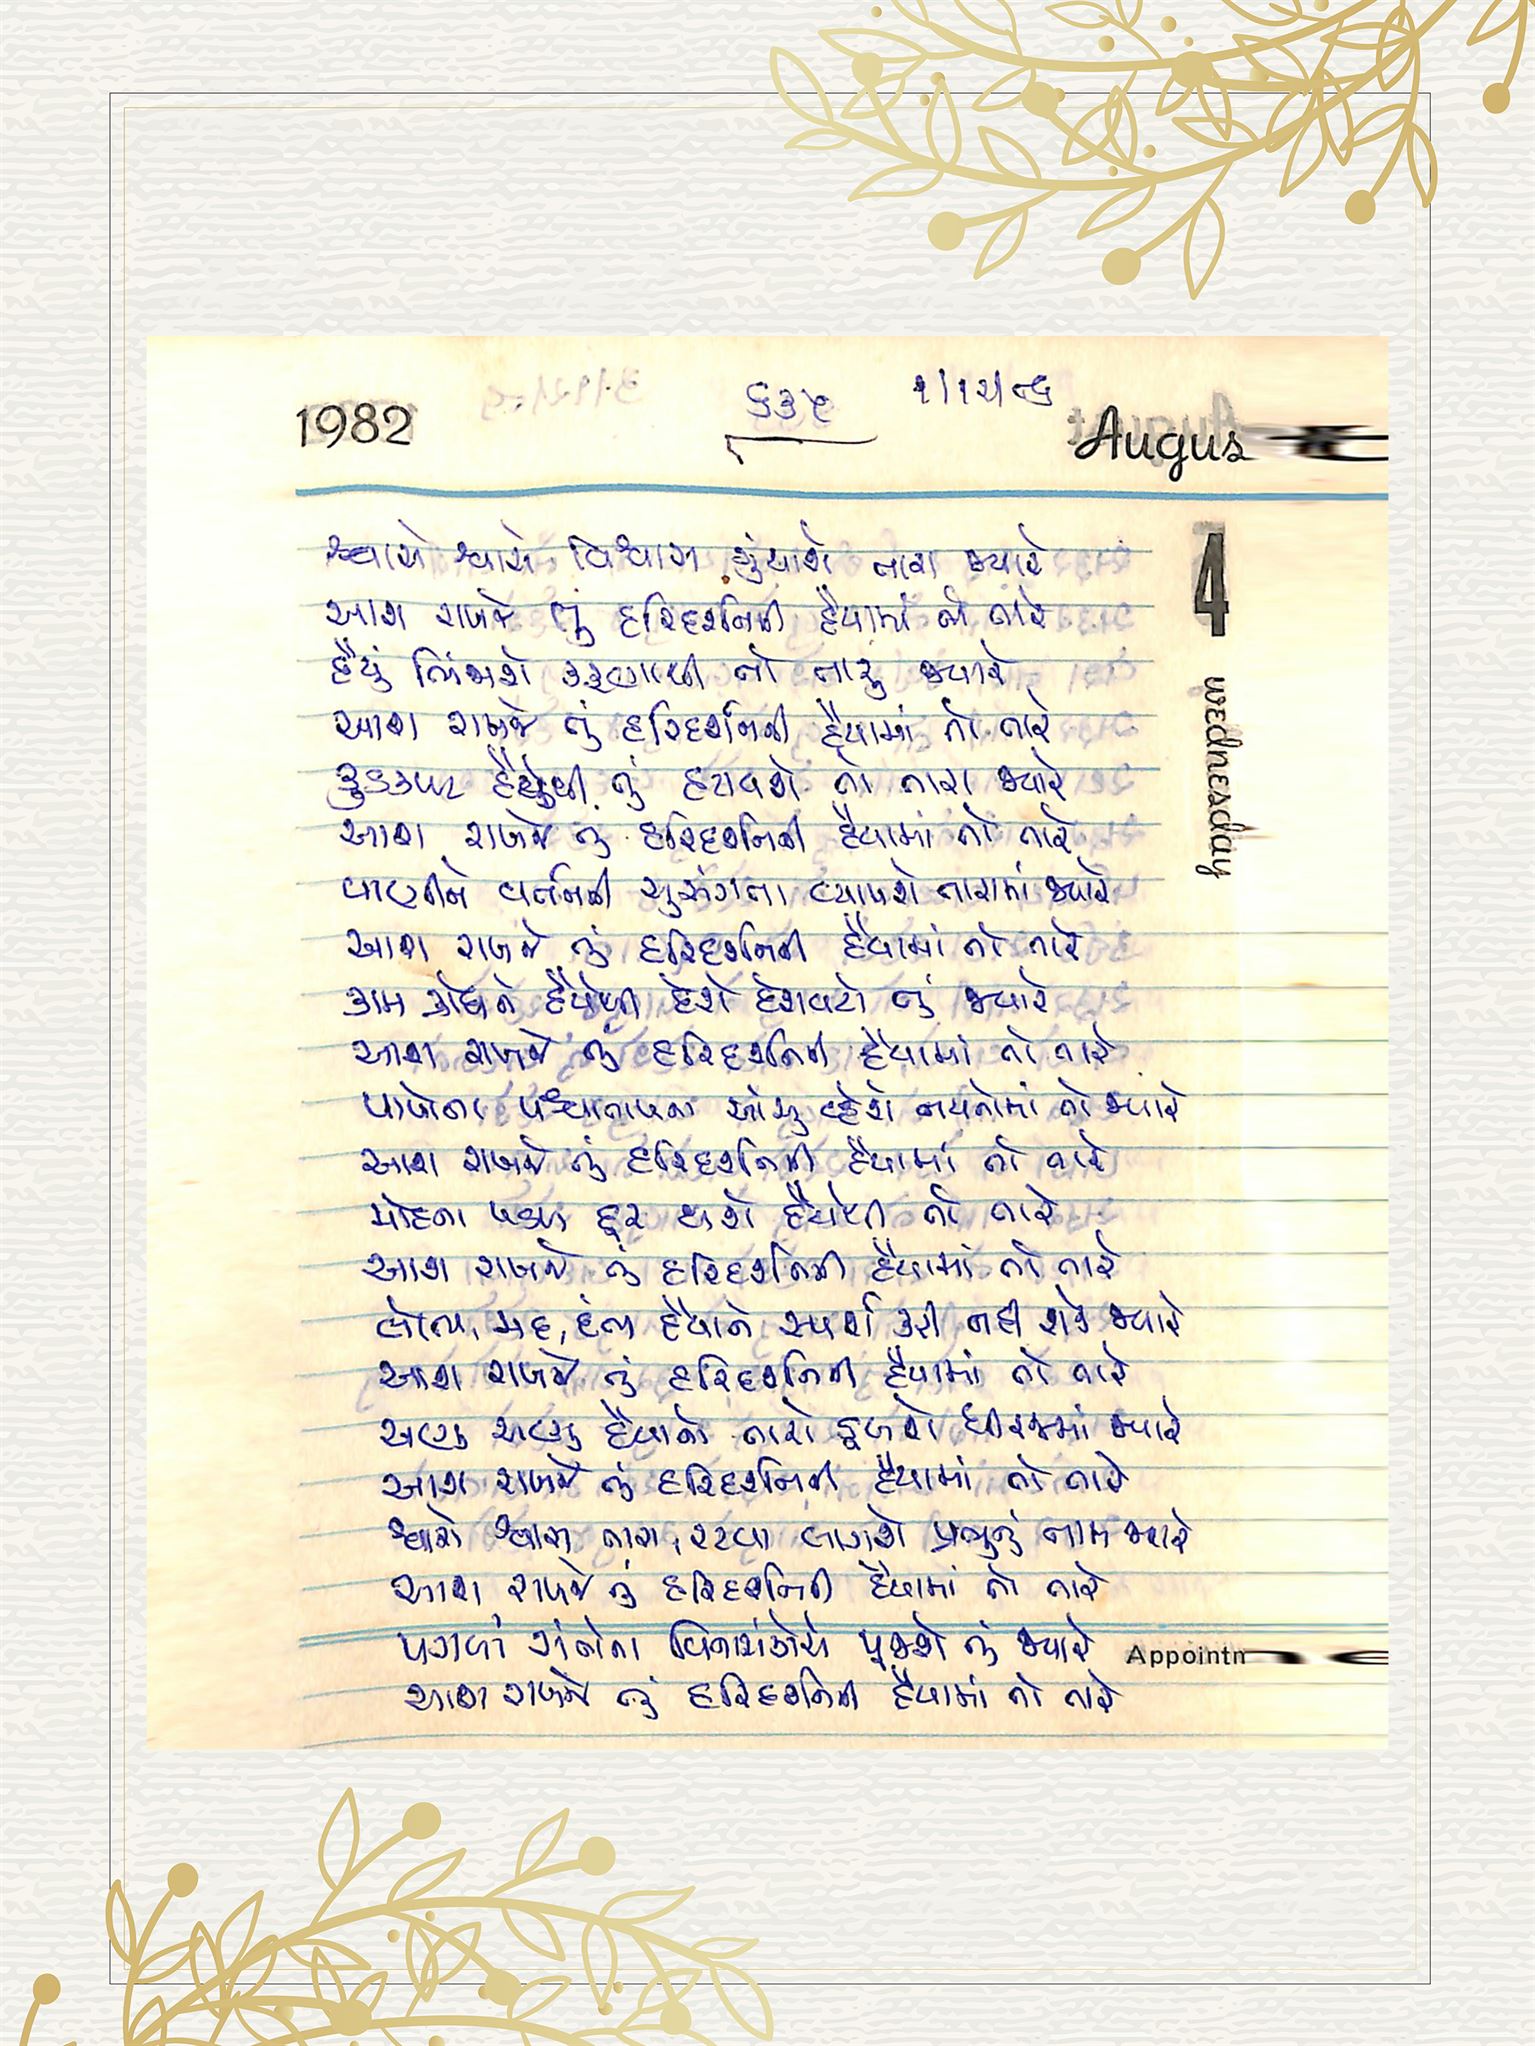 1982 ૬૩૯ ૧/૧૨/૮૬ Augus
4
wednesday
શ્વાસે શ્વાસે વિશ્વાસ ગૂંથાશે તારા જ્યારે
આશ રાખજે તું હરિદર્શનની હૈયામાં તો ત્યારે
હૈયું ભિંજાશે કરૂણાથી તો તારૂ જ્યારે
આશ રાખજે તું હરિદર્શનની હૈયામાં તો ત્યારે
કુડકપટ હૈયેથી તું હટાવશે તો તારા જ્યારે
આશ રાખજે તું હરિદર્શનની હૈયામાં તો ત્યારે
વાણીને વર્તનની સુસંગતા વ્યાપશે તારામાં જ્યારે
આશ રાખજે તું હરિદર્શનની હૈયામાં તો ત્યારે
કામ ક્રોધને હૈયેથી દેશે દેશવટો તું જ્યારે
આશ રાખજે તું હરિદર્શનની હૈયામાં તો ત્યારે
પાપોના પશ્ચાતાપના આંસુ વ્હેશે નયનોમાં તો જ્યારે
આશ રાખજે તું હરિદર્શનની હૈયામાં તો ત્યારે
મોહના પડળ દૂર થાશે હૈયેથી તો ત્યારે
આશ રાખજે તું હરિદર્શનની હૈયામાં તો ત્યારે
લોભ, મદ, દંભ હૈયાને સ્પર્શ કરી નહી શકે જ્યારે
આશ રાખજે તું હરિદર્શનની હૈયામાં તો ત્યારે
અણુ અણુ હૈયાનો તારો ડૂબશે ધીરજમાં જ્યારે
આશ રાખજે તું હરિદર્શનની હૈયામાં તો ત્યારે
શ્વાસે શ્વાસ તારા, રટવા લાગશે પ્રભુનું નામ જ્યારે
આશ રાખજે તું હરિદર્શનની હૈયામાં તો ત્યારે
પગલાં સંતોના પૂજશે તું જ્યારે
Appointn
આશ રાખજે તું હરિદર્શનની હૈયામાં તો ત્યારે